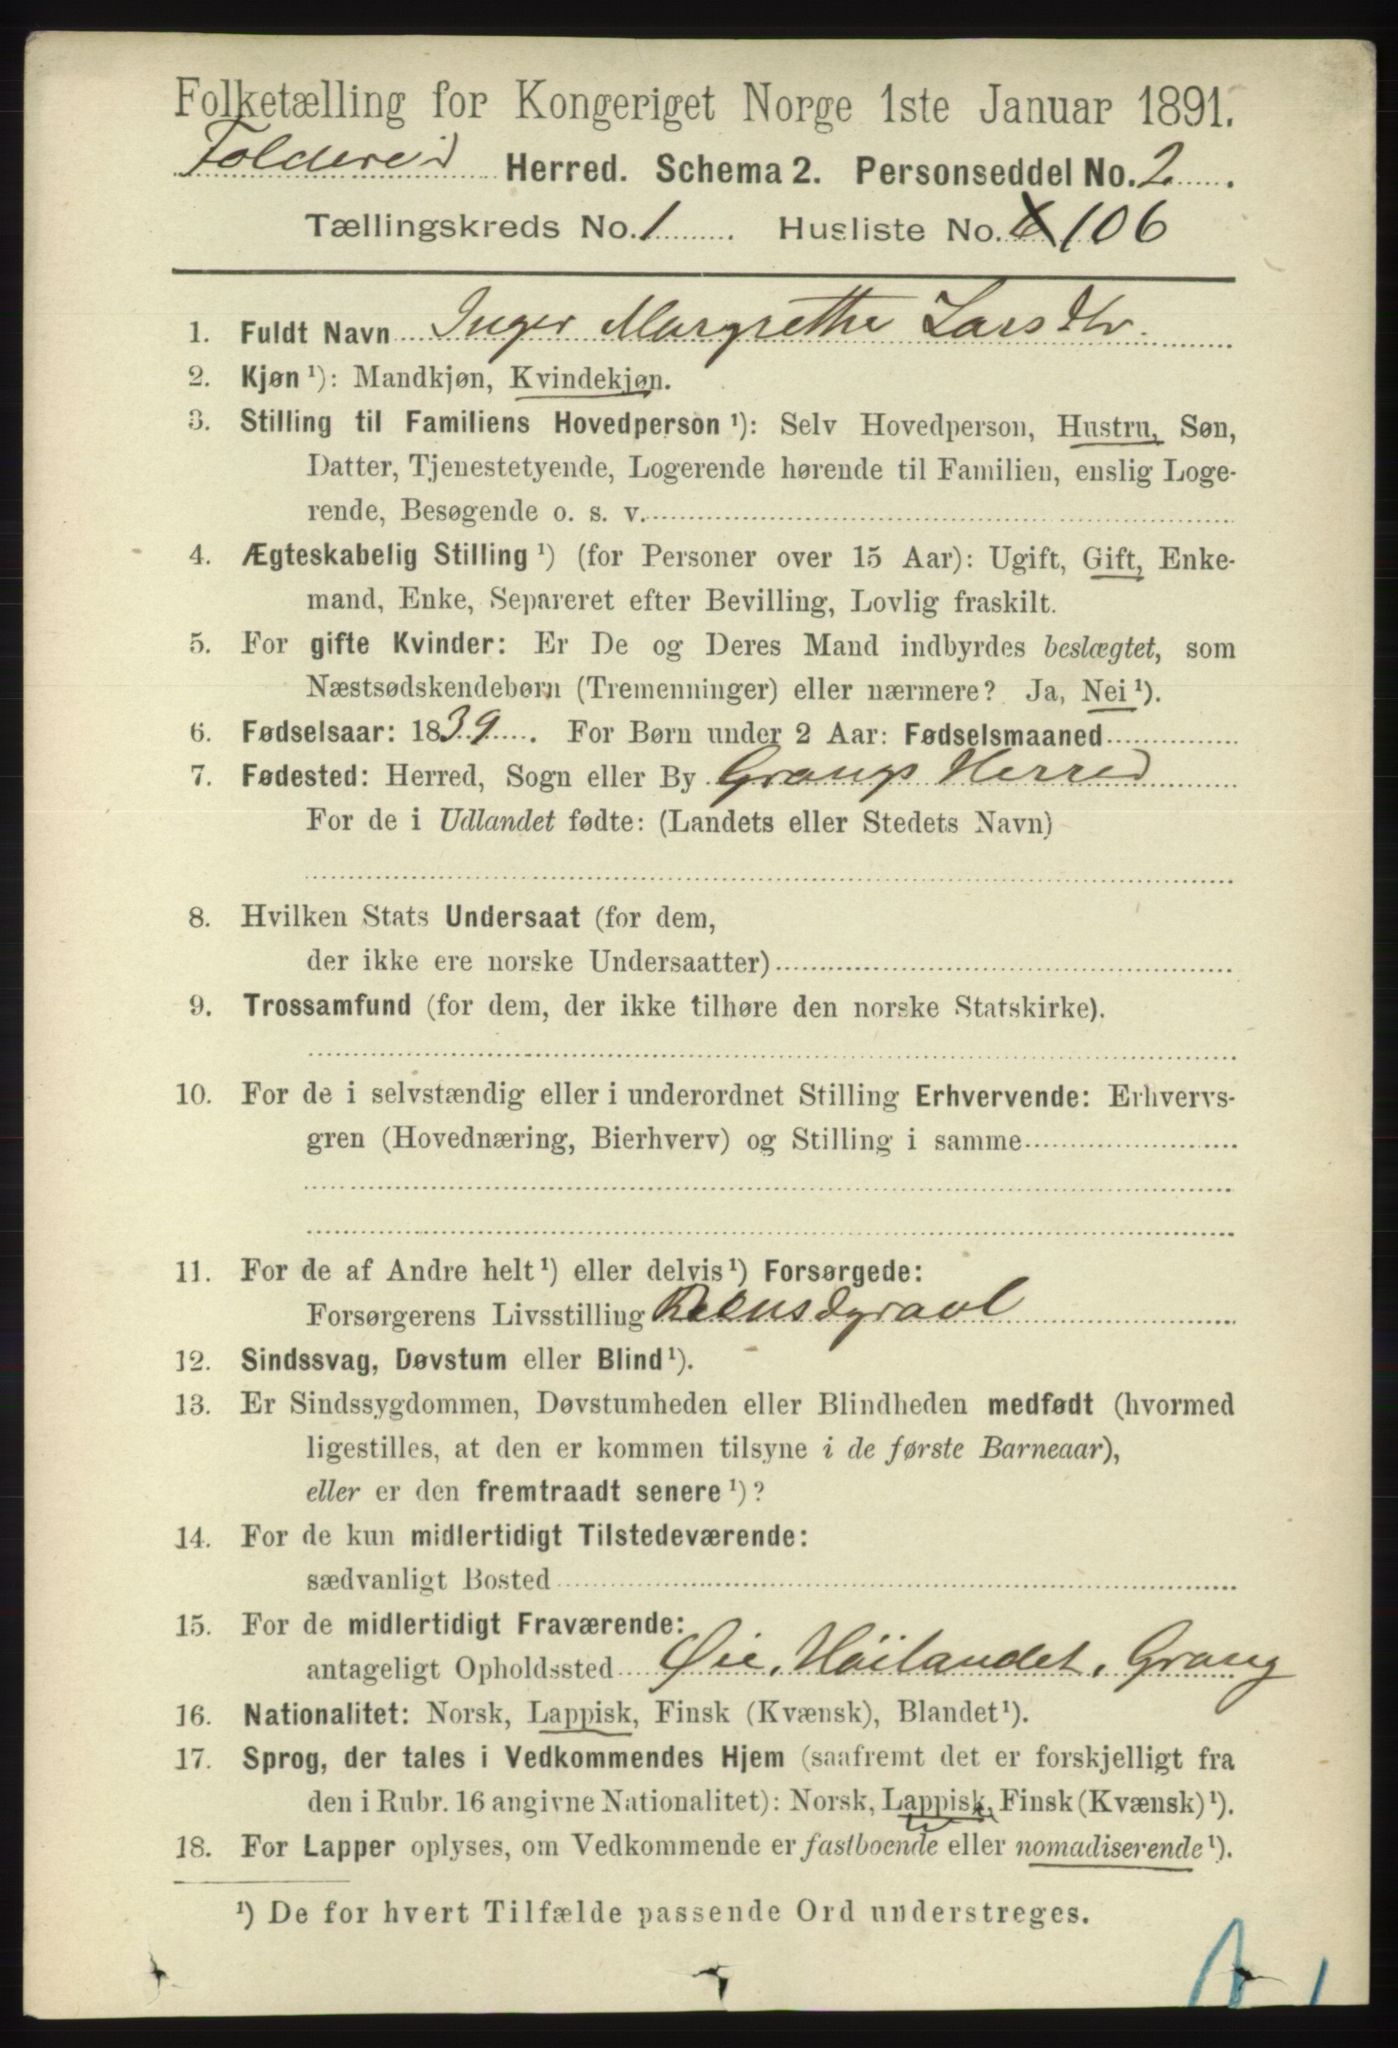 Folketælling for Kongeriget Norge 1ste Januar 1891.
Foldereid Herred. Schema 2. Personseddel No. 2
Tællingskreds No. 1 Husliste No. 106
1. Fuldt Navn Inger Margrethe Larsdtr.
2. Kjøn ¹): Mandkjøn, Kvindekjøn.
3. Stilling til Familiens Hovedperson ¹): Selv Hovedperson, Hustru, Søn,
Datter, Tjenestetyende, Logerende hørende til Familien, enslig Loge-
rende, Besøgende o. s. v.
4. Ægteskabelig Stilling ¹) (for Personer over 15 Aar): Ugift, Gift, Enke-
mand, Enke, Separeret efter Bevilling, Lovlig fraskilt.
5. For gifte Kvinder: Er De og Deres Mand indbyrdes beslægtet, som
Næstsødskendebørn (Tremenninger) eller nærmere? Ja, Nei ¹).
6. Fødselsaar: 1839. For Børn under 2 Aar: Fødselsmaaned
7. Fødested: Herred, Sogn eller By Grongs Herred
For de i Udlandet fødte: (Landets eller Stedets Navn)
8. Hvilken Stats Undersaat (for dem,
der ikke ere norske Undersaatter)
9. Trossamfund (for dem, der ikke tilhøre den norske Statskirke).
10. For de i selvstændig eller i underordnet Stilling Erhvervende: Erhvervs-
gren (Hovednæring, Bierhverv) og Stilling i samme
11. For de af Andre helt ¹) eller delvis ¹) Forsørgede:
Forsørgerens Livsstilling Rensdyravl
12. Sindssvag, Døvstum eller Blind ¹).
13. Er Sindssygdommen, Døvstumheden eller Blindheden medfødt (hvormed
ligestilles, at den er kommen tilsyne i de første Barneaar),
eller er den fremtraadt senere ¹)?
14. For de kun midlertidigt Tilstedeværende:
sædvanligt Bosted
15. For de midlertidigt Fraværende:
antageligt Opholdssted Øie, Höilandet, Grong
16. Nationalitet: Norsk, Lappisk, Finsk (Kvænsk), Blandet ¹).
17. Sprog, der tales i Vedkommendes Hjem (saafremt det er forskjelligt fra
den i Rubr. 16 angivne Nationalitet): Norsk, Lappisk, Finsk (Kvænsk) ¹).
18. For Lapper oplyses, om Vedkommende er fastboende eller nomadiserende ¹).
¹) De for hvert Tilfælde passende Ord understreges.